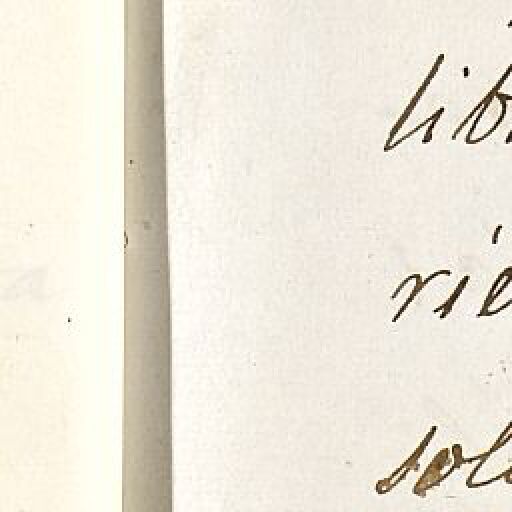 lib
rie
sol